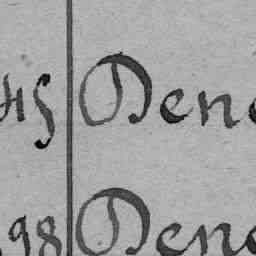 45 Dene
98 Dene